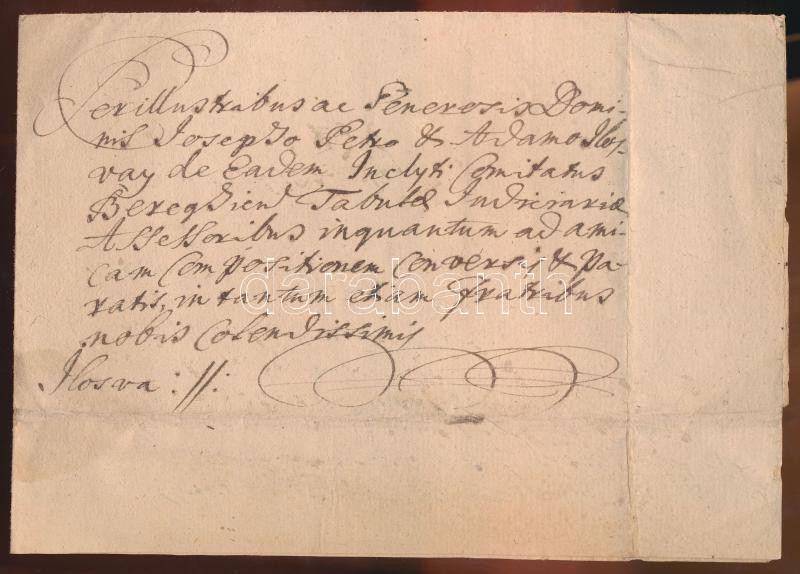 Perillustribus ac Generosis Domi-
nis Josepho Petro & Adamo Ilos-
vay de Eadem Inclyti Comitatus
Bereghiens Tabulæ Judiciariæ
Assessoribus inquantum ad ami-
cam Compositionem Conversis & Pa-
ratis, in tantum etiam fratribus
nobis Colendissimis
Ilosva : //:
darabanth